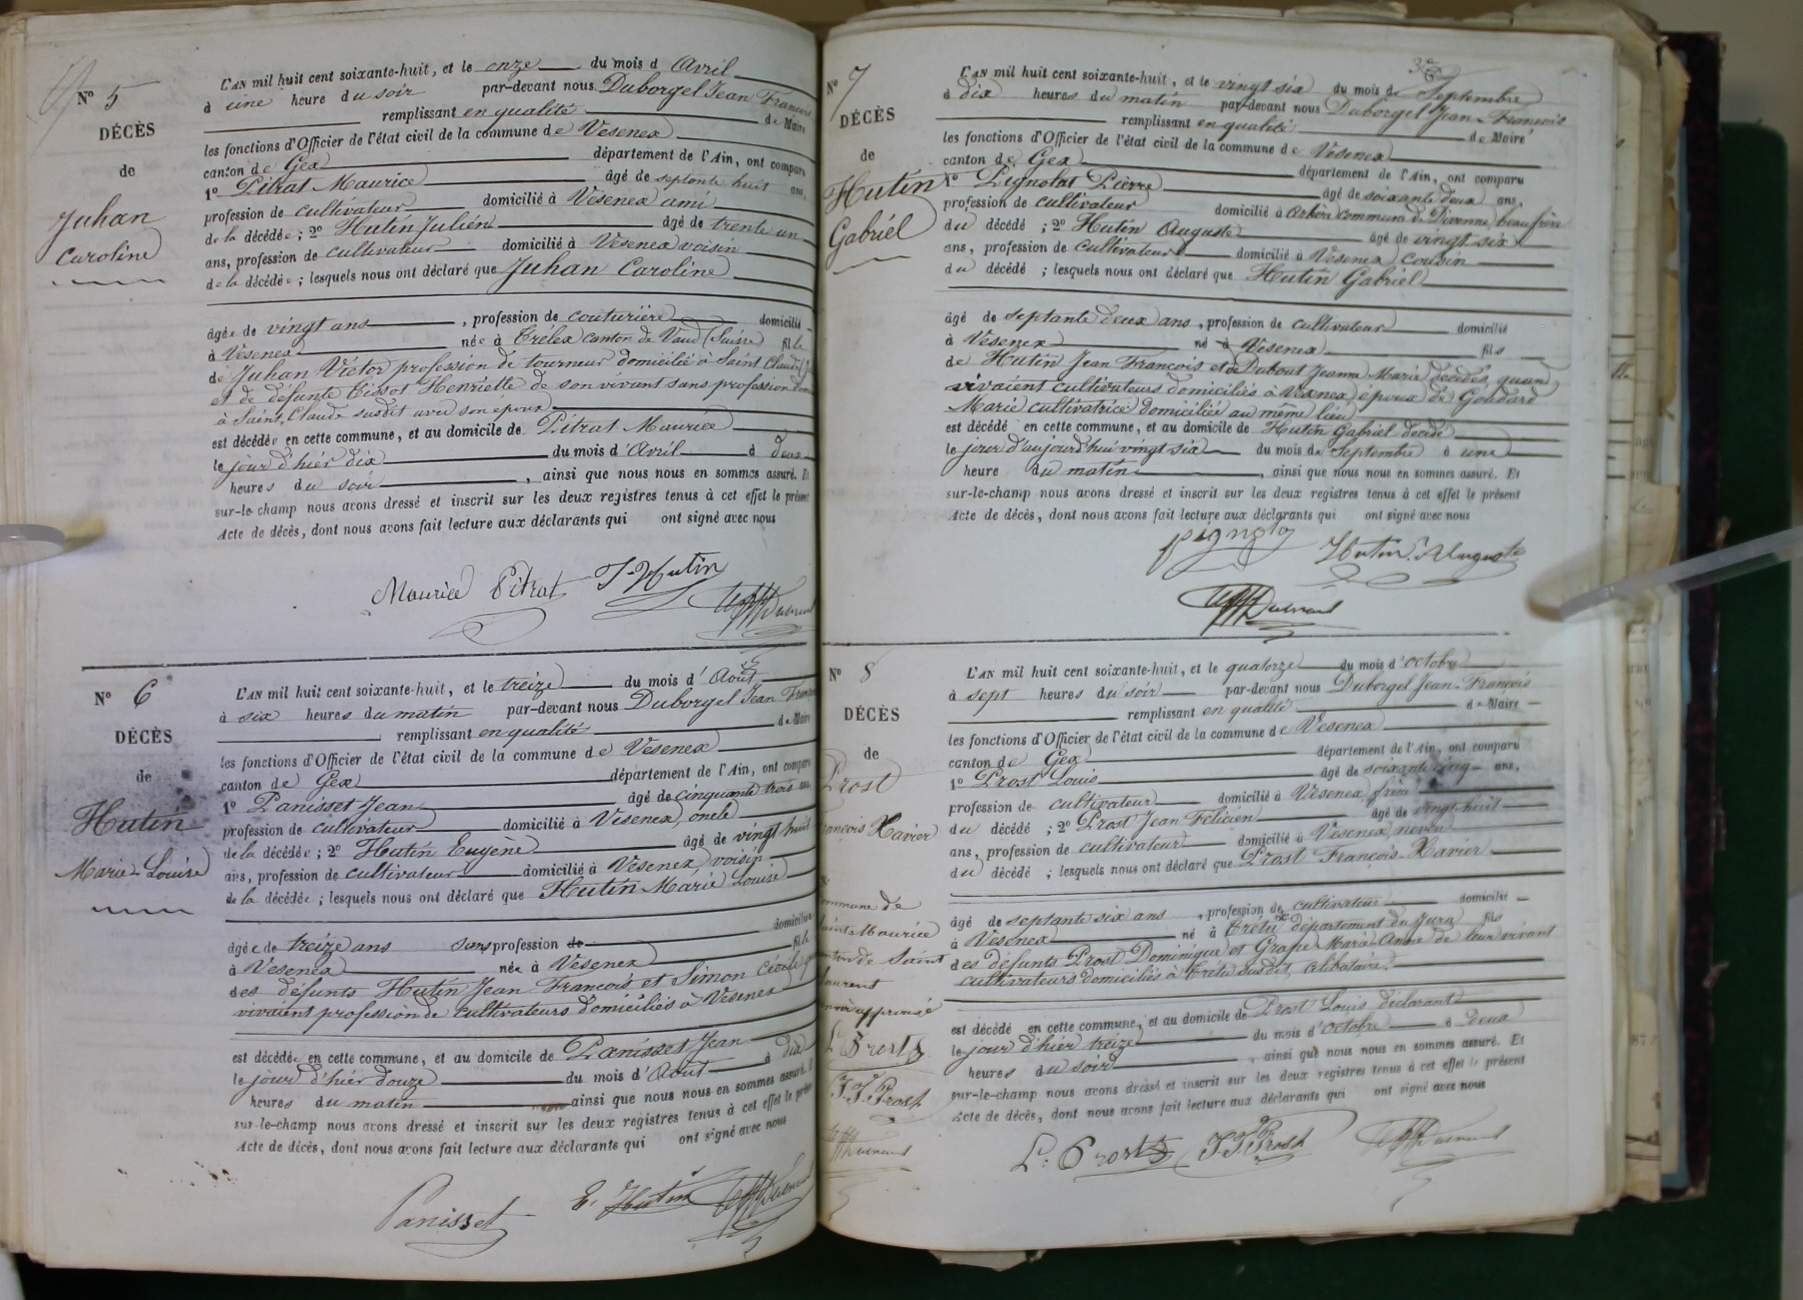 Nº 5
DÉCÈS
de
Juhan
Caroline
L'AN mil huit cent soixante-huit, et le onze du mois d Avril
à une heure du soir par-devant nous Duborgel Jean François
remplissant en qualité de Maire
les fonctions d'Officier de l'état civil de la commune de Vesenex
canton de Gex département de l'Ain, ont comparu
1º Pétrat Maurice âgé de septante huit ans,
profession de cultivateur domicilié à Vesenex ami
de la décédée ; 2º Hutin Julien âgé de trente un
ans, profession de cultivateur domicilié à Vesenex voisin
de la décédée ; lesquels nous ont déclaré que Juhan Caroline
âgée de vingt ans , profession de couturière domicilié
à Vesenex née à Trélex canton de Vaud (Suisse) fille
de Juhan Victor profession de tourneur domicilié à Saint Claude
et de défunte Tissot Henriette de son vivant sans profession
à Saint Claude susdit avec son époux
est décédée en cette commune, et au domicile de Pétrat Maurice
le jour d'hier dix du mois d'Avril à deux
heures du soir , ainsi que nous nous en sommes assuré. Et
sur-le-champ nous avons dressé et inscrit sur les deux registres tenus à cet effet le présent
Acte de décès, dont nous avons fait lecture aux déclarants qui ont signé avec nous
Maurice Pétrat J. Hutin
Nº 6
DÉCÈS
de
Hutin
Marie-Louise
L'AN mil huit cent soixante-huit, et le treize du mois d'Août
à six heures du matin par-devant nous Duborgel Jean François
remplissant en qualité de Maire
les fonctions d'Officier de l'état civil de la commune de Vesenex
canton de Gex département de l'Ain, ont comparu
1º Panisset Jean âgé de cinquante trois ans
profession de cultivateur domicilié à Vesenex, oncle
de la décédée ; 2º Hutin Eugène âgé de vingt huit
ans, profession de cultivateur domicilié à Vesenex, voisin
de la décédée ; lesquels nous ont déclaré que Hutin Marie Louise
âgée de treize ans sans profession de domicilié
à Vesenex née à Vesenex fille
des défunts Hutin Jean François et Simon Cécile
vivaient profession de cultivateurs domiciliés à Vesenex
est décédée en cette commune, et au domicile de Panisset Jean
le jour d'hier douze du mois d'Août à dix
heures du matin ainsi que nous nous en sommes assuré.
sur-le-champ nous avons dressé et inscrit sur les deux registres tenus à cet effet le présent
Acte de décès, dont nous avons fait lecture aux déclarants qui ont signé avec nous
Panisset E. Hutin
Nº 7
DÉCÈS
de
Hutin
Gabriel
L'AN mil huit cent soixante-huit, et le vingt six du mois de Septembre
à dix heures du matin par-devant nous Duborgel Jean-François
remplissant en qualité de Maire
les fonctions d'Officier de l'état civil de la commune de Vesenex
canton de Gex département de l'Ain, ont comparu
1º Pignolat Pierre âgé de soixante deux ans,
profession de cultivateur domicilié à Arbère commune de Divonne, beau frère
du décédé ; 2º Hutin Auguste âgé de vingt six
ans, profession de cultivateur domicilié à Vesenex cousin
du décédé ; lesquels nous ont déclaré que Hutin Gabriel
âgé de septante deux ans , profession de cultivateur domicilié
à Vesenex né à Vesenex fils
de Hutin Jean François et de Dubout Jeanne Marie décédés, quand
vivaient cultivateurs domiciliés à Vesenex, époux de Goudard
Marie cultivatrice domiciliée au même lieu
est décédé en cette commune, et au domicile de Hutin Gabriel décédé
le jour d'aujourd'hui vingt six du mois de Septembre à une
heure du matin , ainsi que nous nous en sommes assuré. Et
sur-le-champ nous avons dressé et inscrit sur les deux registres tenus à cet effet le présent
Acte de décès, dont nous avons fait lecture aux déclarants qui ont signé avec nous
Hutin Auguste
Nº 8
DÉCÈS
de
Prost
François Xavier
commune de
Sainte Maurice
canton de Saint
Laurent
approuvé
L Prost
J J Prost
L'AN mil huit cent soixante-huit, et le quatorze du mois d'octobre
à sept heures du soir par-devant nous Duborgel Jean-François
remplissant en qualité de Maire
les fonctions d'Officier de l'état civil de la commune de Vesenex
canton de Gex département de l'Ain, ont comparu
1º Prost Louis âgé de soixante cinq ans,
profession de cultivateur domicilié à Vesenex frère
du décédé ; 2º Prost Jean Félicien âgé de vingt-huit
ans, profession de cultivateur domicilié à Vesenex, neveu
du décédé ; lesquels nous ont déclaré que Prost François-Xavier
âgé de septante six ans , profession de cultivateur domicilié
à Vesenex né à Crétu département du Jura fils
des défunts Prost Dominique et Grapé Marie Anne de leur vivant
cultivateurs domiciliés à Crétu susdit, célibataire.
est décédé en cette commune, et au domicile de Prost Louis déclarant
le jour d'hier treize du mois d'octobre à deux
heures du soir , ainsi que nous nous en sommes assuré. Et
sur-le-champ nous avons dressé et inscrit sur les deux registres tenus à cet effet le présent
Acte de décès, dont nous avons fait lecture aux déclarants qui ont signé avec nous
L. Prost J J Prost